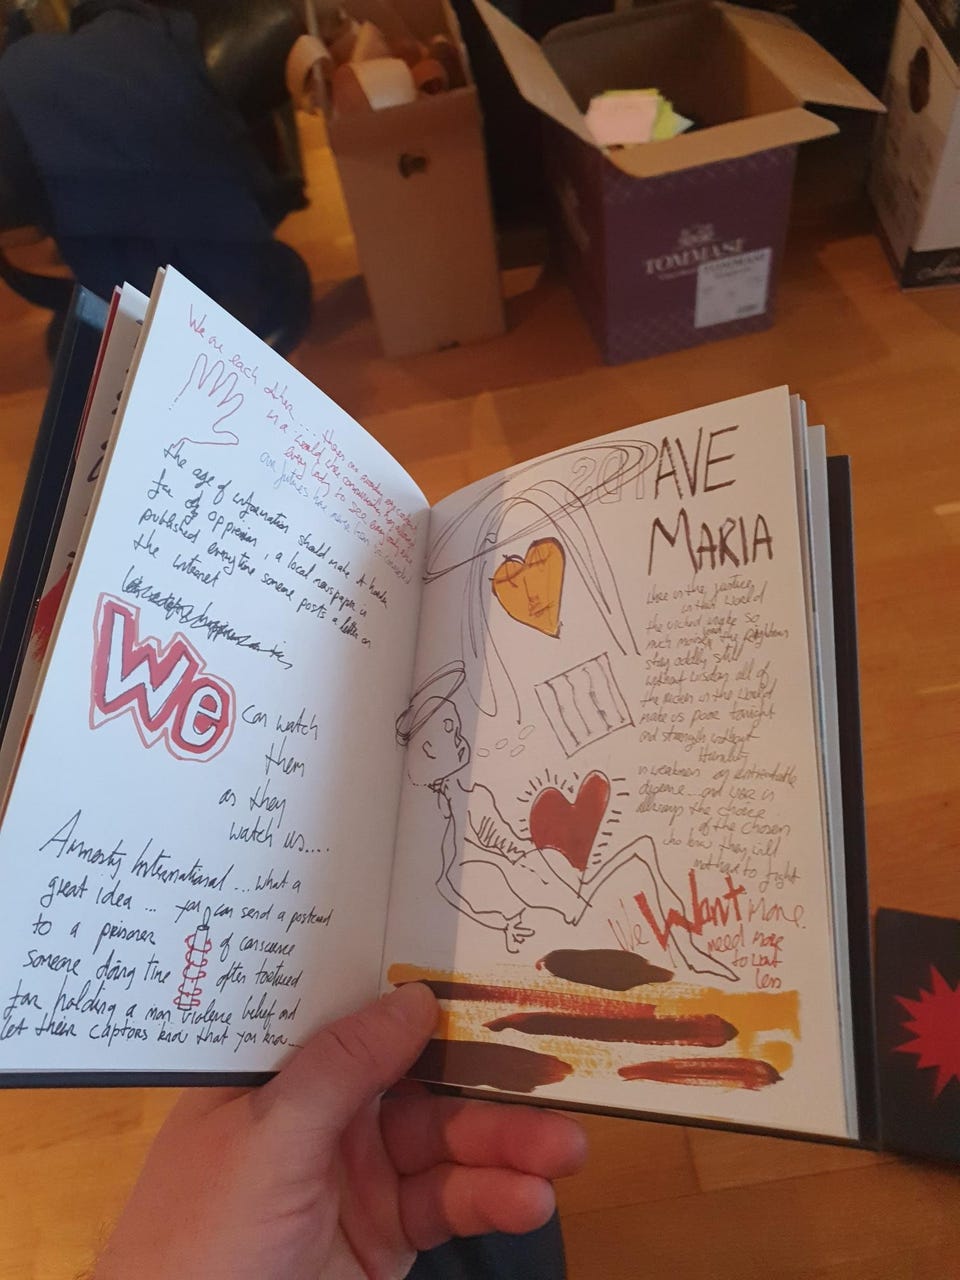 We are each other.... there are
in a world
every body to see every
our futures have never been so connected
the age of information should make it harder
for oppression, a local newspaper is
published everytime someone posts a letter on
the internet
We can watch
them
as they
watch us....
Amnesty International... what a
great idea... you can send a postcard
to a prisoner of conscience
someone doing time often tortured
for holding a non violence belief and
let their captors know that you know...
AVE
MARIA
in this world
the wicked make so
much noise the
stay oddly still
without wisdom all of
the riches in the world
make us poor tonight
and strength without
Humility
is weakness
defence... and war is
always the choice
of the chosen
who know they will
not have to fight
We Want more
need more
to want
less
TOMMASI